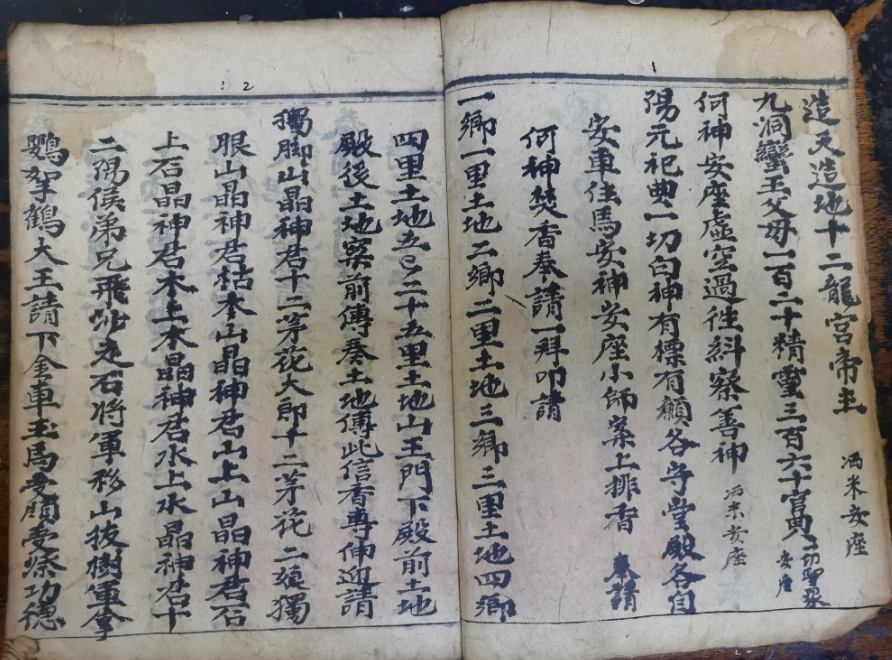 1
造天造地十二龍宮帝主 洒米安座
九洞蠻王父母一百二十精靈三百六十官員 一切聖衆安座
何神安座虛空過往糾察善神 洒米安座
陽元祀典一切白神有標有願各守堂殿各自
安車住馬安神安座小師案上排香 奏請
何神焚香奉請一拜叩請
一鄉一里土地二鄉二里土地三鄉三里土地四鄉
2
四里土地五 二十五里土地山王門下殿前土地
殿後土地案前傳奏土地傳此信香專伸迎請
獨脚山晶神君十二茅花大郎十二茅花二娘獨
眼山晶神君枯木山晶神君山上山晶神君石
上石晶神君木上木晶神君水上水晶神君十
二陽侯弟兄飛沙走石將軍移山拔樹軍拿
大王請下金車玉馬受願受祭功德